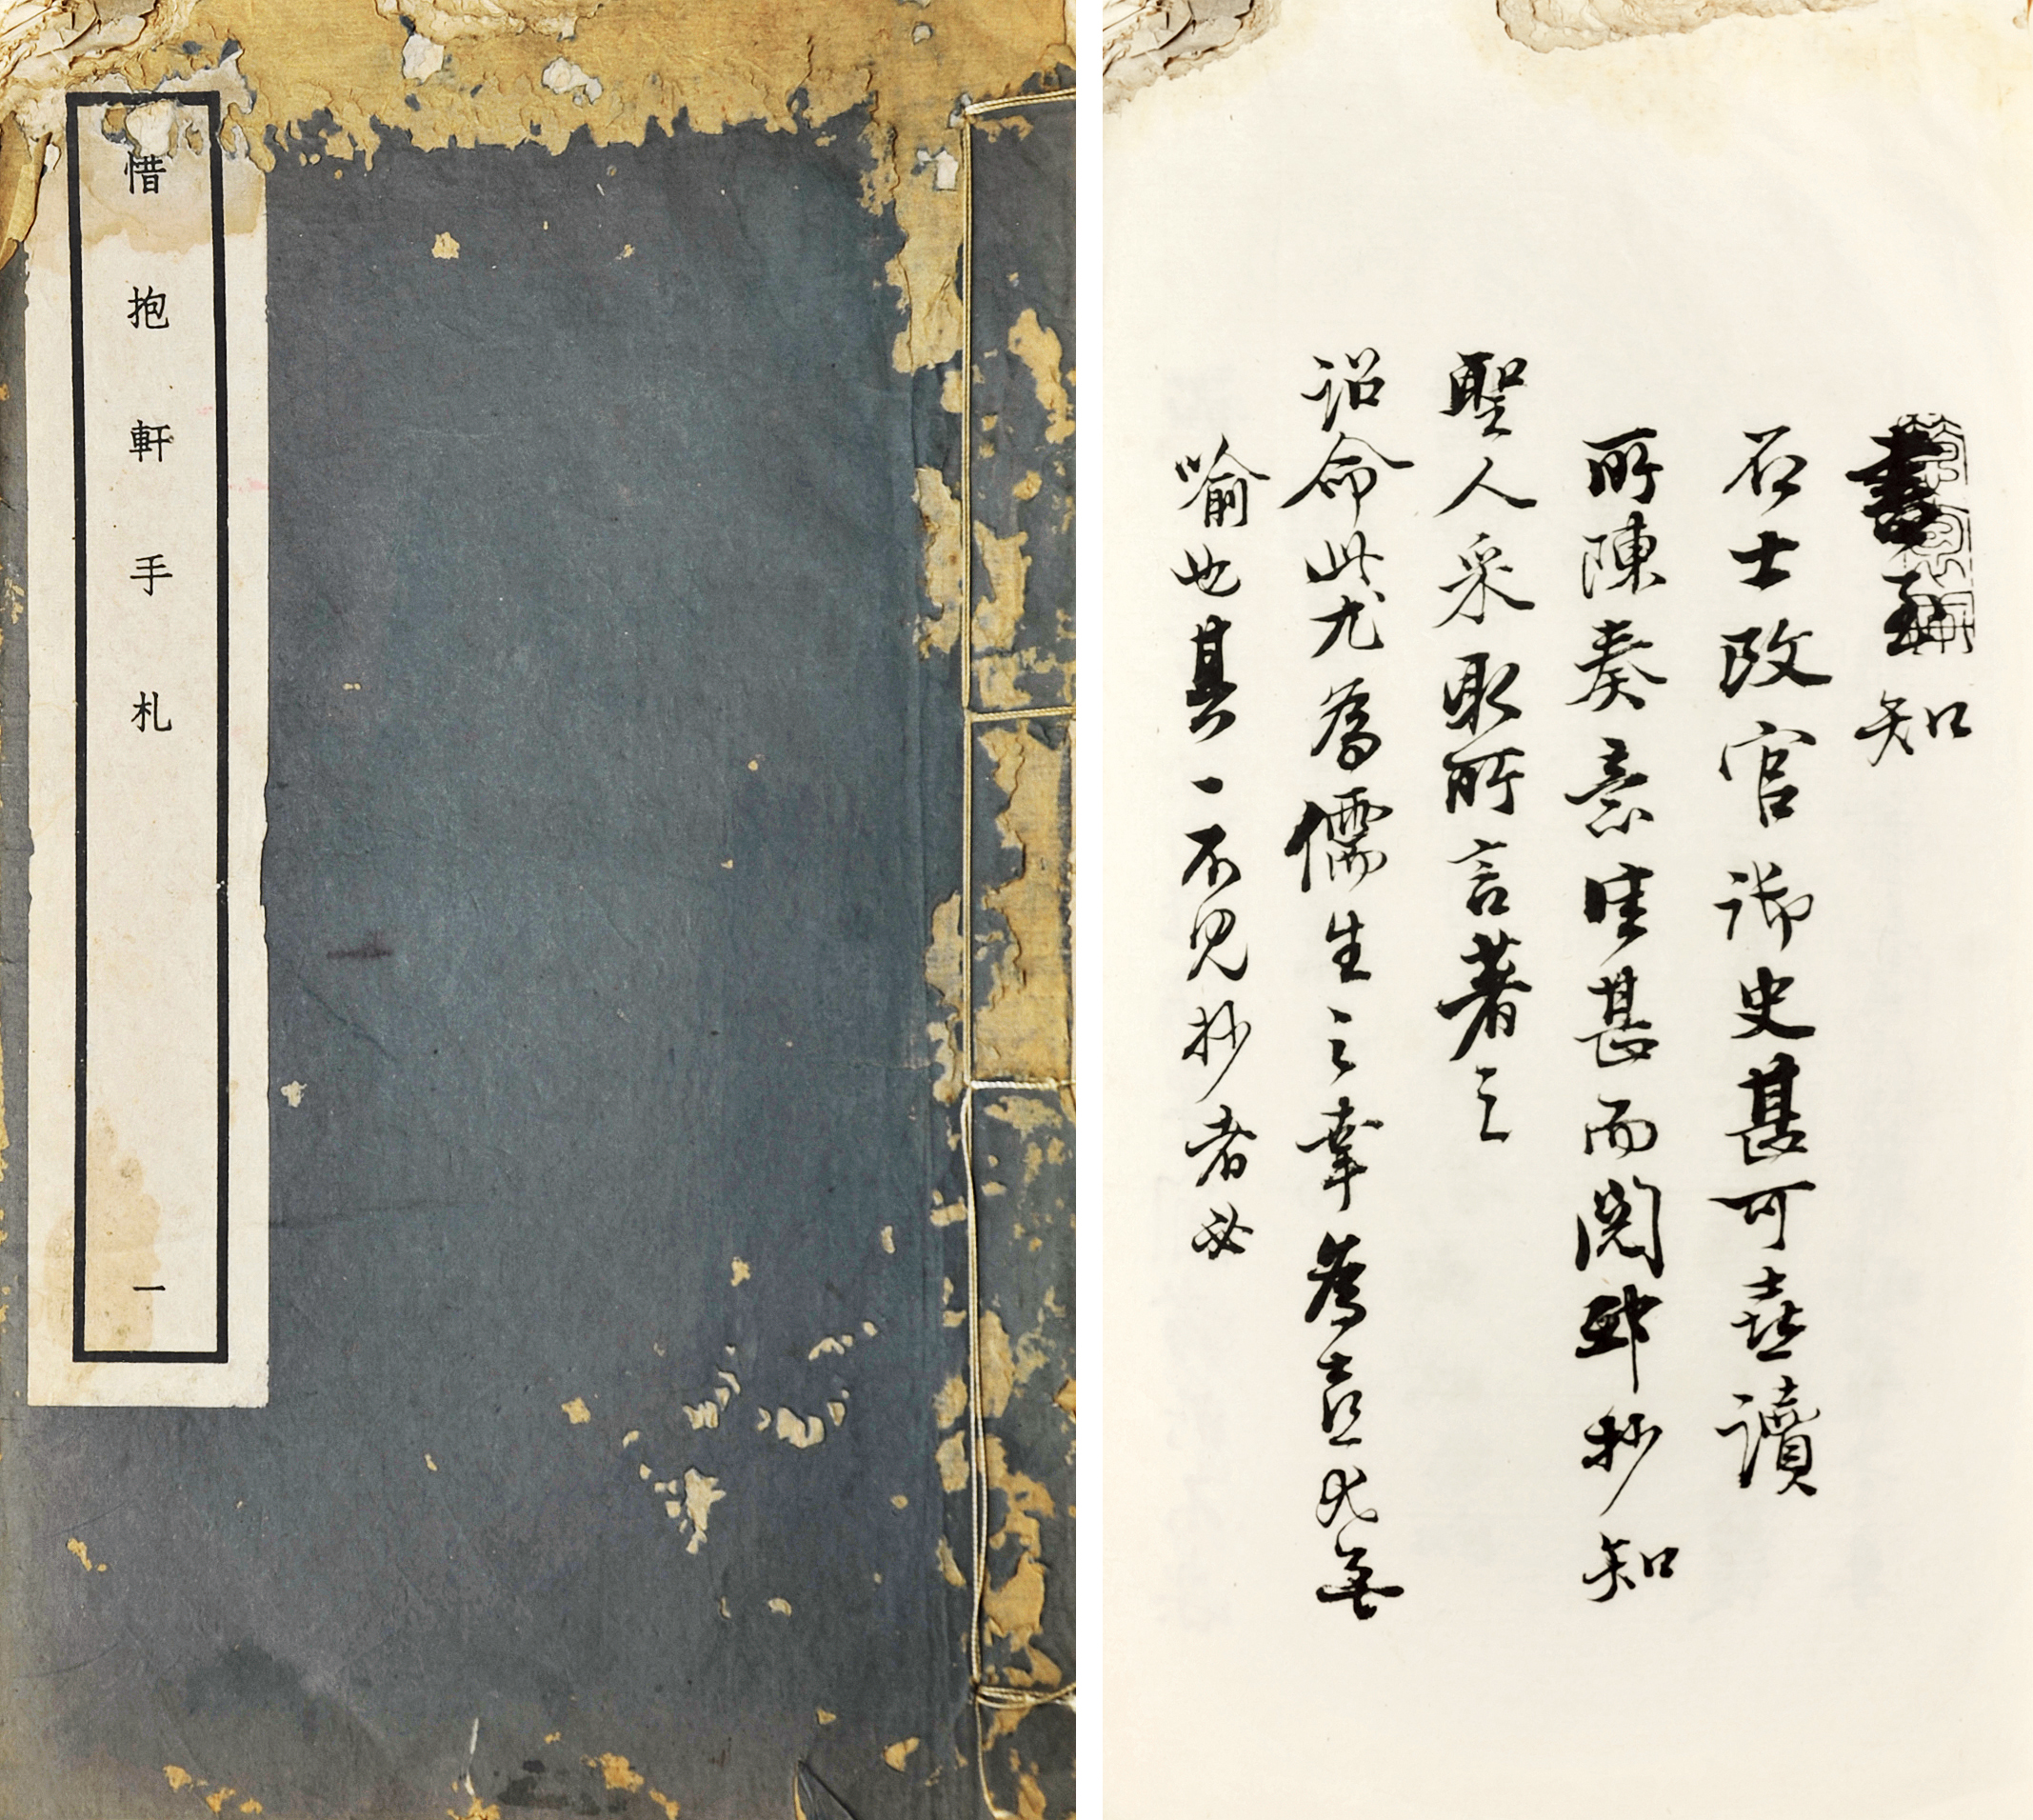 惜抱軒手札
一
書至知
石士改官御史甚可喜讀
所陳奏意佳甚而閱邸抄知
聖人采取所言著之
詔命此尤為儒生之幸為言臣光無
喻也其一不見抄者必